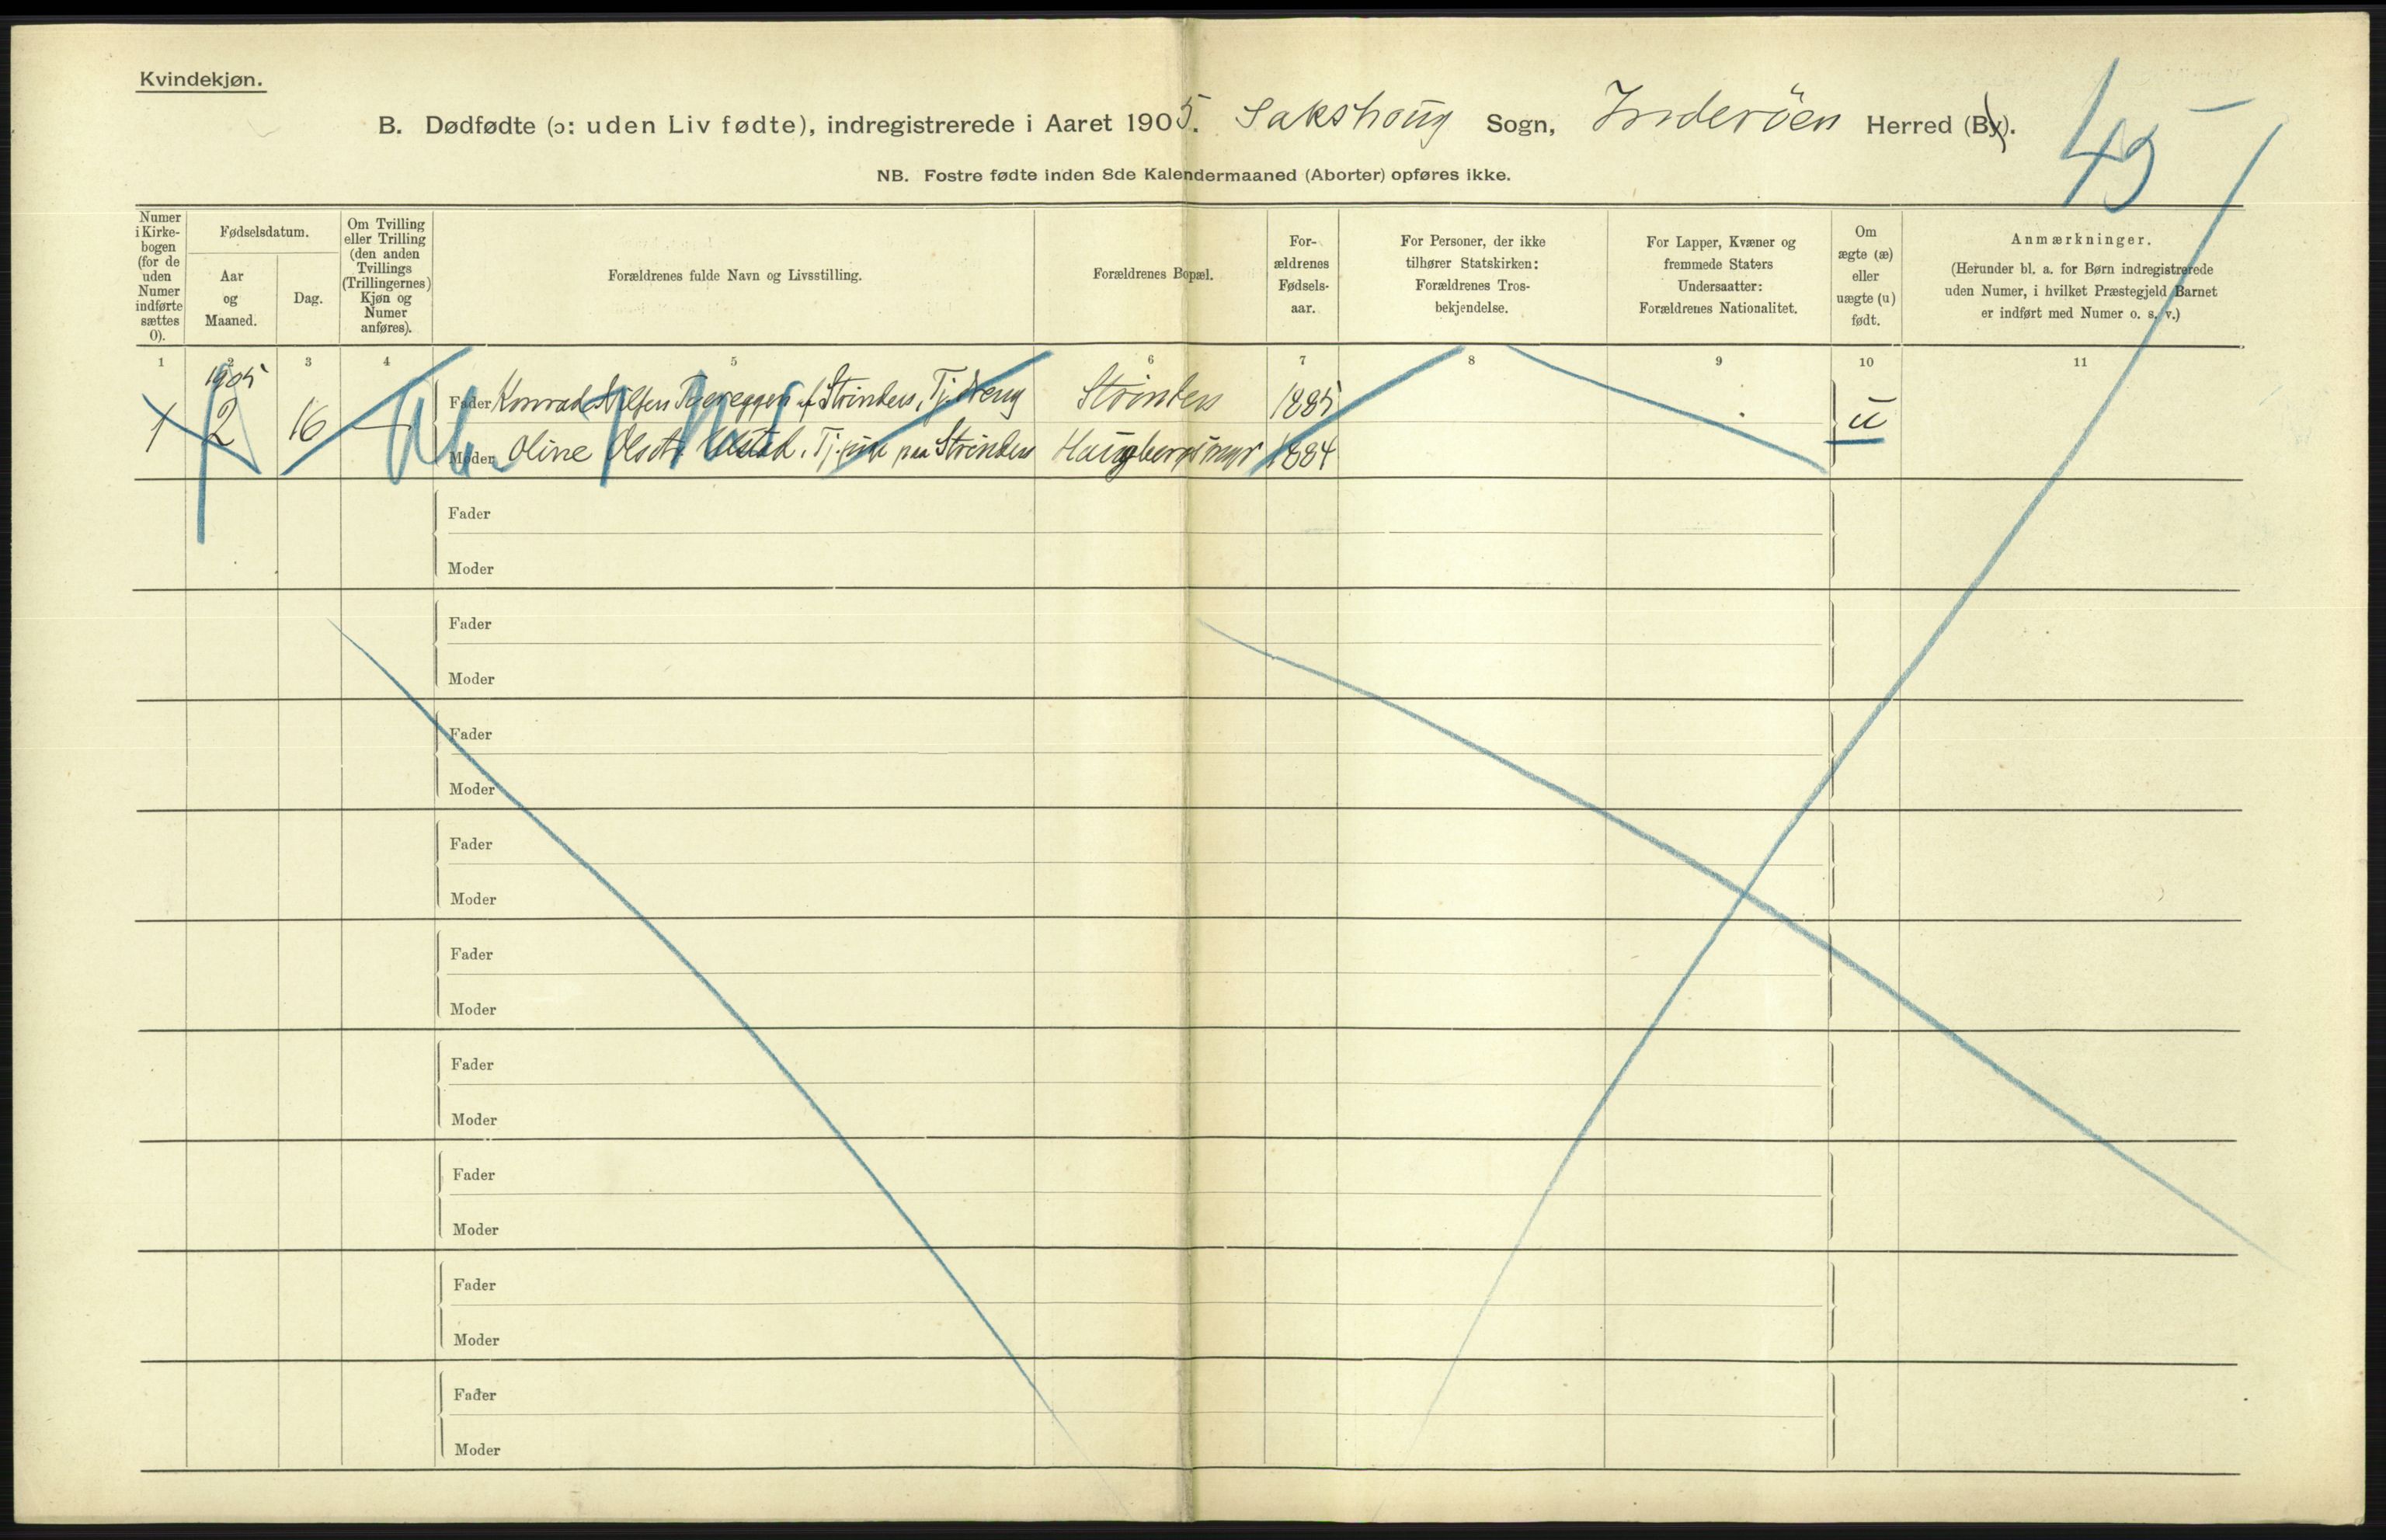 Kvindekjøn.
B. Dødfødte (ɔ: uden Liv fødte), indregistrerede i Aaret 1905. Sakshaug Sogn, Inderöen Herred (By).
45
NB. Fostre fødte inden 8de Kalendermaaned (Aborter) opføres ikke.
Numer
i Kirke-
bogen
(for de
uden
Numer
indførte
sættes
0).
Fødselsdatum.
Aar
og
Maaned.
Dag.
Om Tvilling
eller Trilling
(den anden
Tvillings
(Trillingernes)
Kjøn og
Numer
anføres).
Forældrenes fulde Navn og Livsstilling.
Forældrenes Bopæl.
For-
ældrenes
Fødsels-
aar.
For Personer, der ikke
tilhører Statskirken:
Forældrenes Tros-
bekjendelse.
For Lapper, Kvæner og
fremmede Staters
Undersaatter:
Forældrenes Nationalitet.
Om
ægte (æ)
eller
uægte (u)
født.
Anmærkninger.
(Herunder bl. a. for Børn indregistrerede
uden Numer, i hvilket Præstegjeld Barnet
er indført med Numer o. s. v.)
1 2 3 4 5 6 7 8 9 10 11
1905
Fader Konrad af Strinden, Tj.dreng Strinden 1885
1 2 16 — u
Moder Oline Olsdtr. Tj. paa Strinden Haugbergsmyr 1884
Fader
Moder
Fader
Moder
Fader
Moder
Fader
Moder
Fader
Moder
Fader
Moder
Fader
Moder
Fader
Moder
Fader
Moder